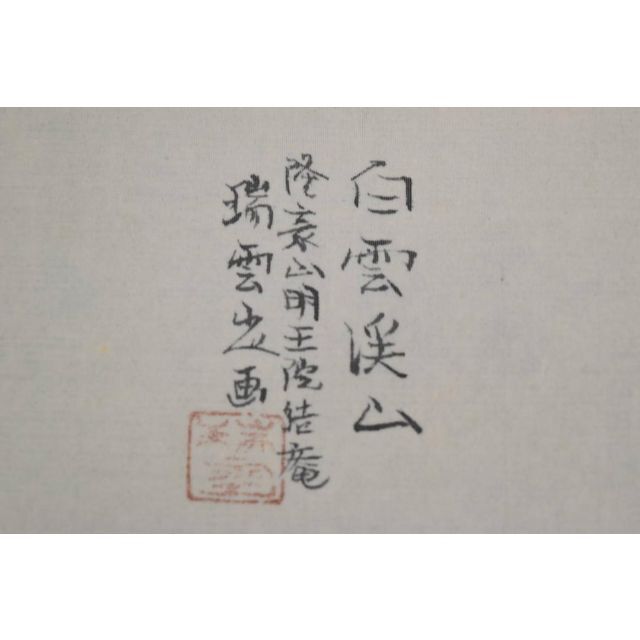 白雲渓山
隆豪山明王院結庵
瑞雲山人画